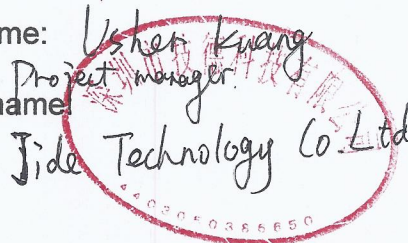 ame: Usher Kuang
Project manager
name:
Jide Technology Co.Ltd
4403050386650